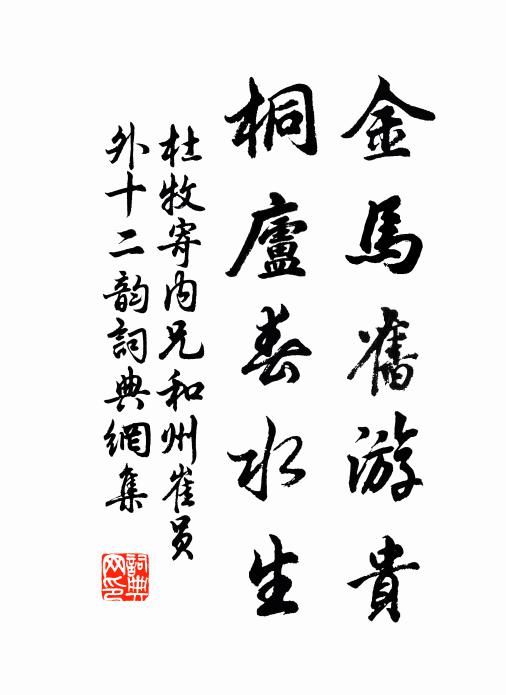 金馬舊游貴
桐廬春水生
杜牧寄內兄和州崔员
外十二韵詞典網集
詞典
网印